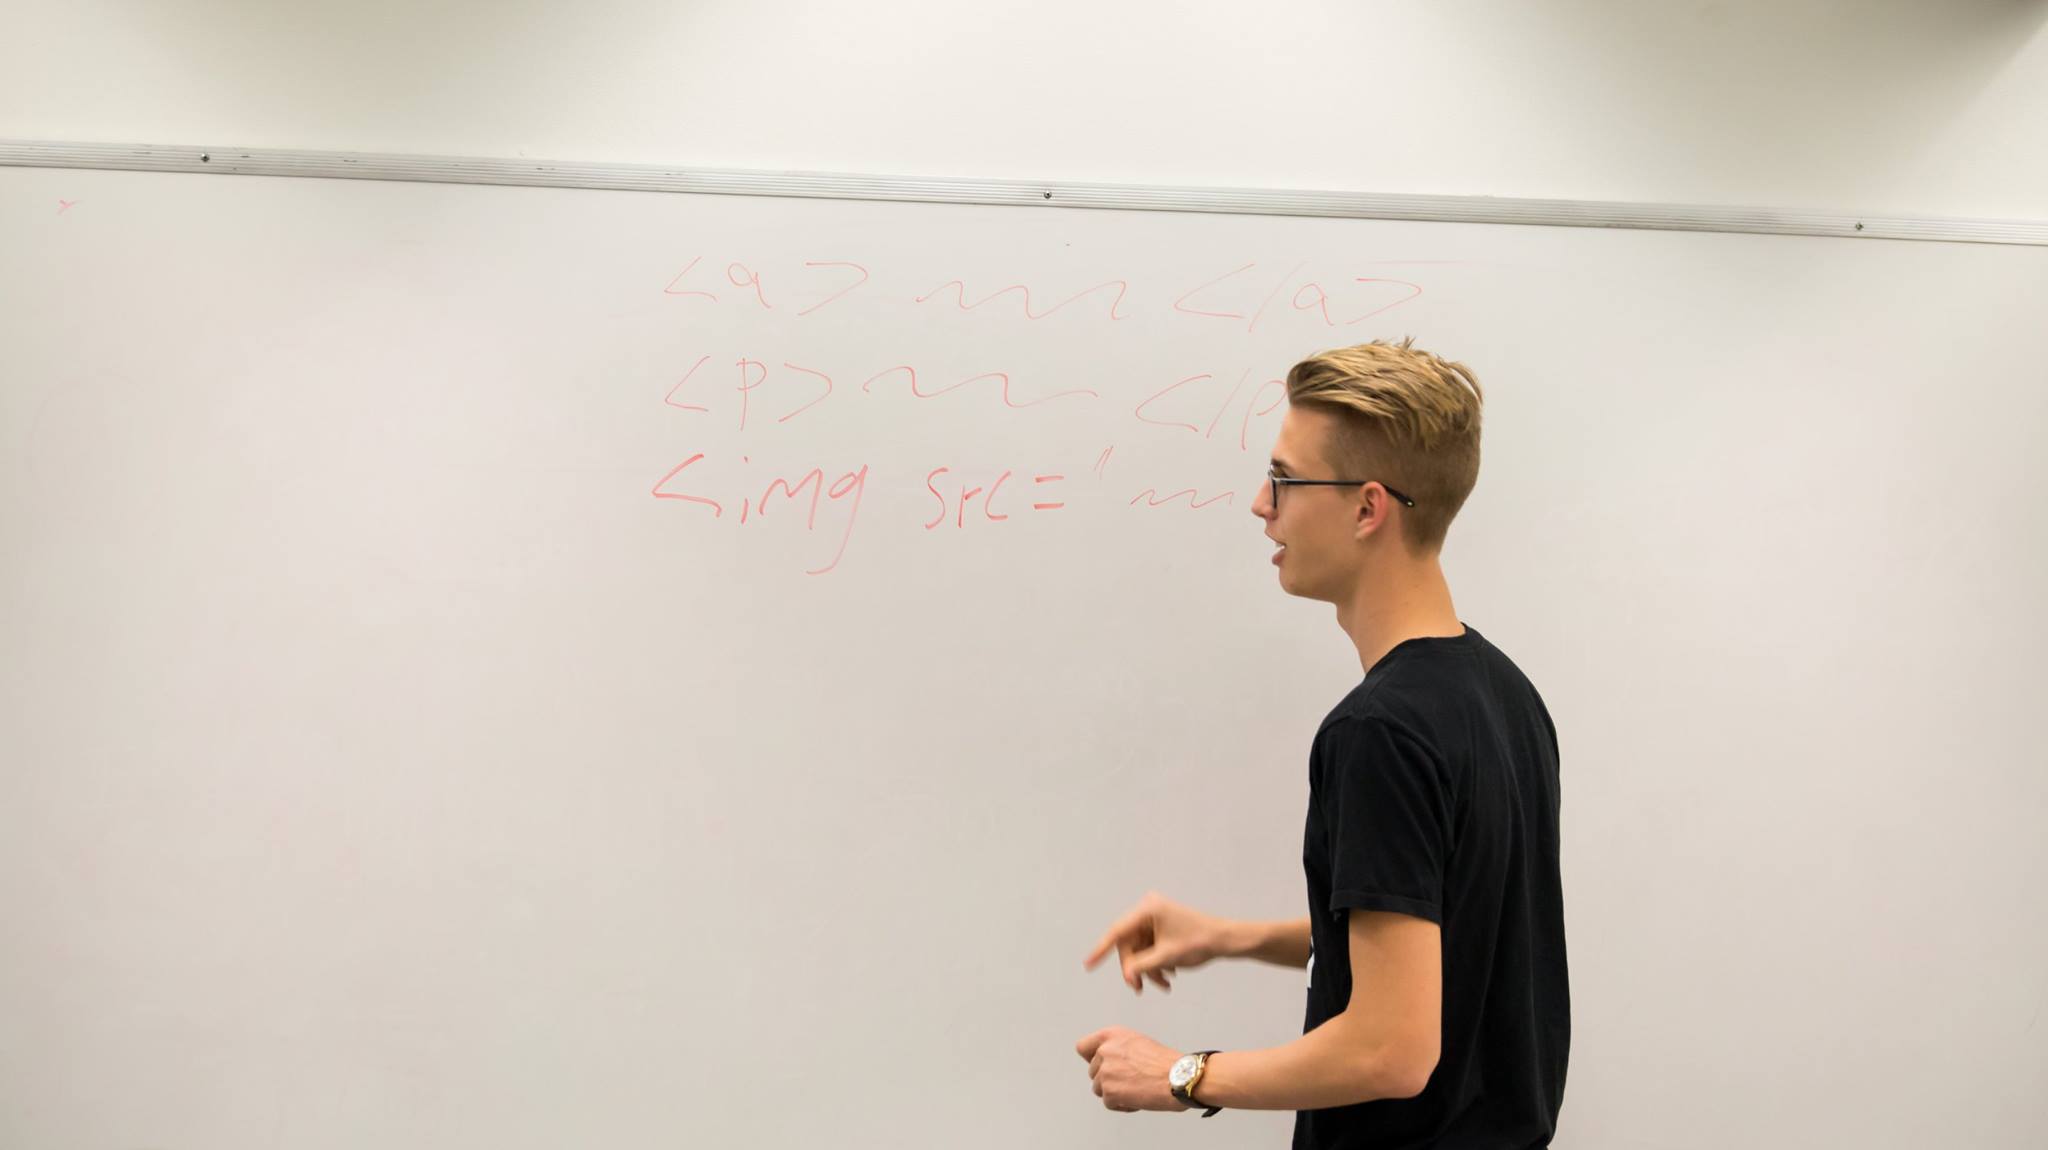 <a> </a>
<p> </p
<img src="